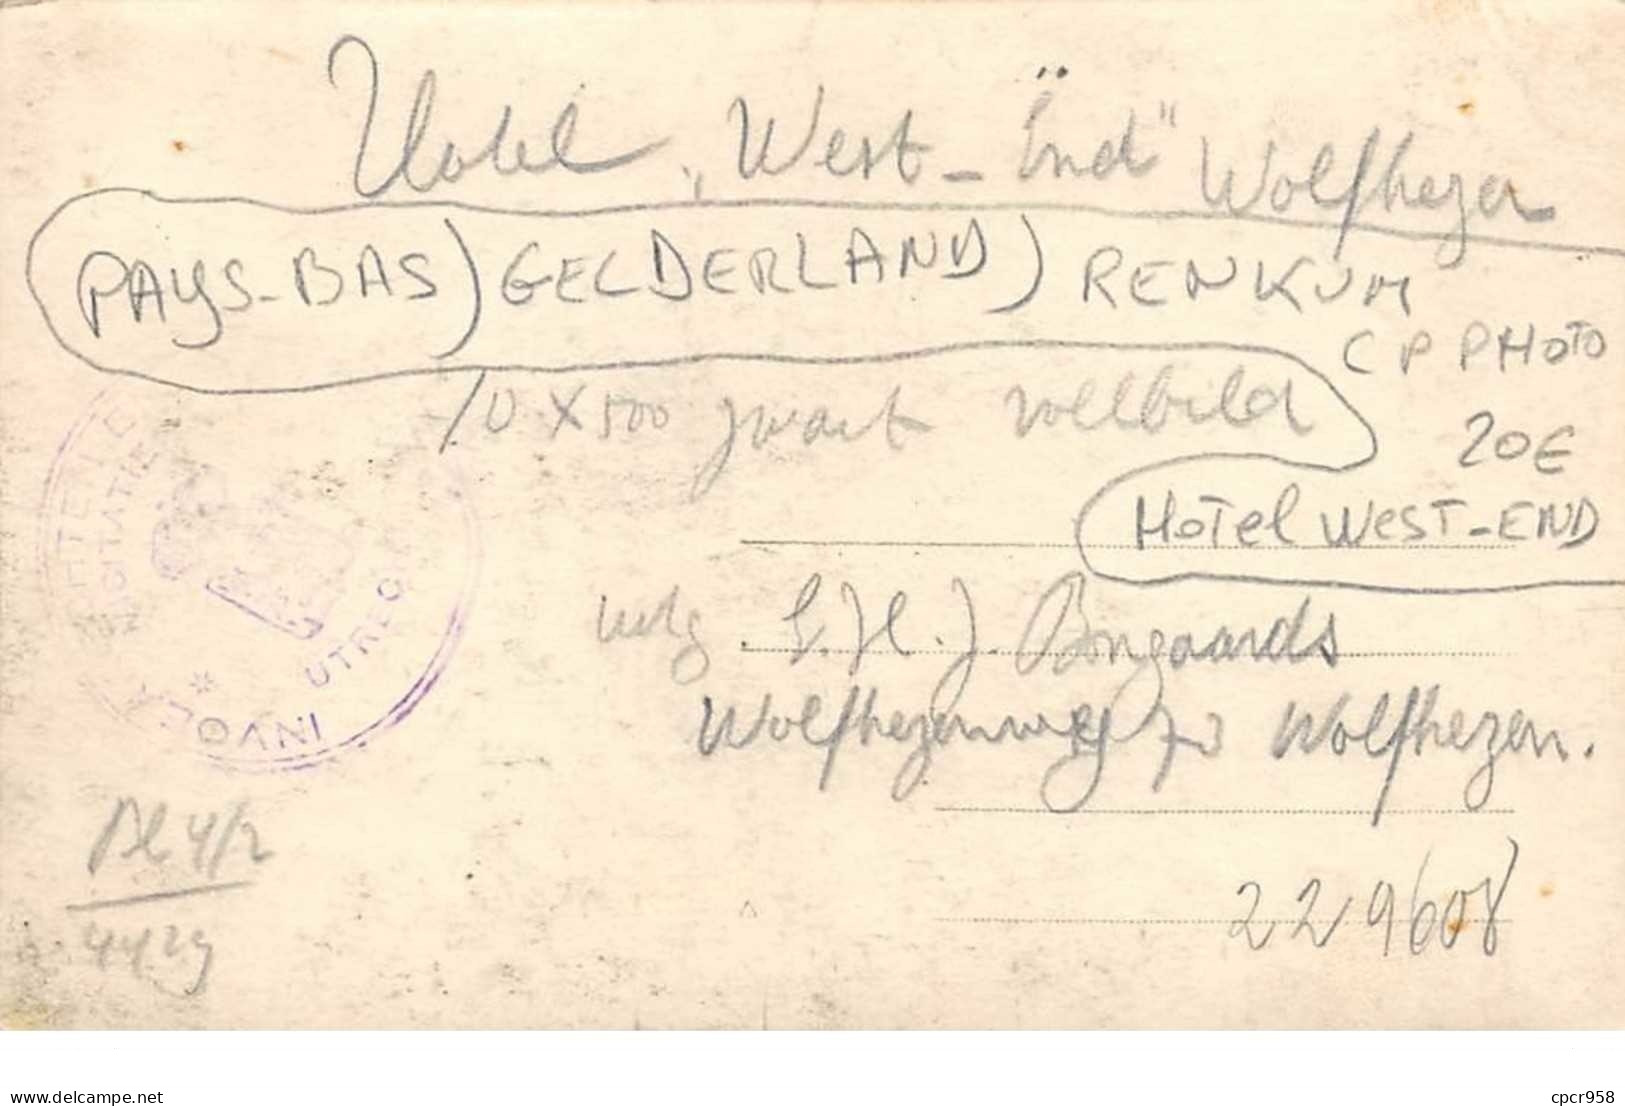 Hotel „West-End" Wolfhezen
PAYS-BAS) GELDERLAND) RENKUM
CP PHOTO
10 X 500 zwart vollbild
20€
HOTEL WEST-END
uitg. E.H.J. Bongaards
Wolfhezenweg 73 Wolfhezen.
INVOER UTRECHT
4/2
4429
229608
delcampe.net
cpcr958